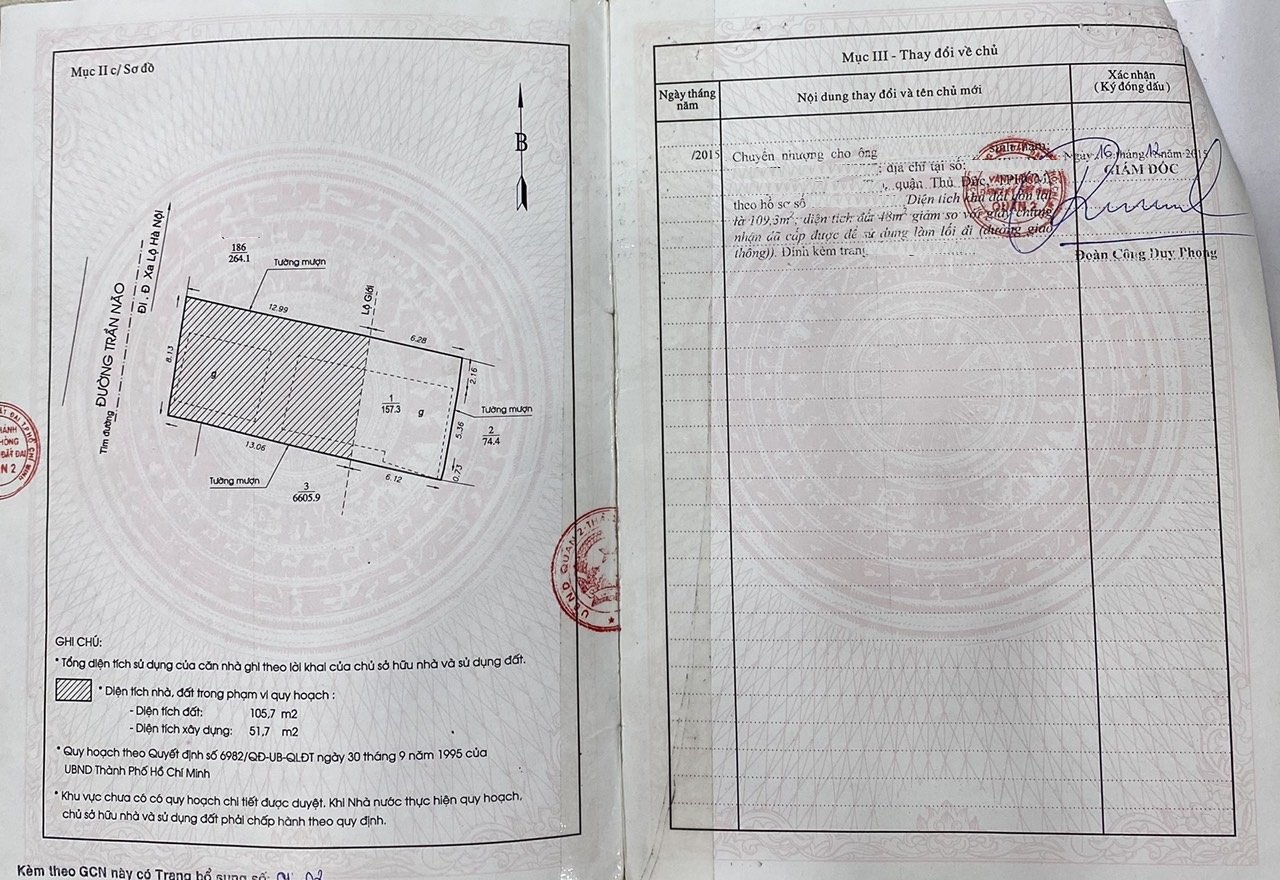 Mục II c/ Sơ đồ
B
ĐƯỜNG TRẦN NÃO
Đi . Đ Xa Lộ Hà Nội
Tim đường
186
264.1
Tường mượn
Lộ Giới
12.99
6.28
8.13
2.16
g
1
157.3
g
Tường mượn
2
74.4
5.36
13.06
6.12
0.73
Tường mượn
3
6605.9
GHI CHÚ:
* Tổng diện tích sử dụng của căn nhà ghi theo lời khai của chủ sở hữu nhà và sử dụng đất.
* Diện tích nhà, đất trong phạm vi quy hoạch :
- Diện tích đất: 105,7 m2
- Diện tích xây dựng: 51,7 m2
* Quy hoạch theo Quyết định số 6982/QĐ-UB-QLĐT ngày 30 tháng 9 năm 1995 của
UBND Thành Phố Hồ Chí Minh
* Khu vực chưa có có quy hoạch chi tiết được duyệt. Khi Nhà nước thực hiện quy hoạch,
chủ sở hữu nhà và sử dụng đất phải chấp hành theo quy định.
Kèm theo GCN này có Trang bổ sung số:
UBND QUẬN 2
Mục III - Thay đổi về chủ
Ngày tháng
năm
Nội dung thay đổi và tên chủ mới
Xác nhận
(Ký đóng dấu)
/2015
Chuyển nhượng cho ông
; địa chỉ tại số:
, quận Thủ Đức,
theo hồ sơ số Diện tích khu đất còn lại
là 109,3m², diện tích đất 48m² giảm so với giấy chứng
nhận đã cấp được để sử dụng làm lối đi (đường giao
thông)). Đính kèm trang
QUẬN 2
Ngày 16 tháng 12 năm 2015
GIÁM ĐỐC
Đoàn Công Duy Phong